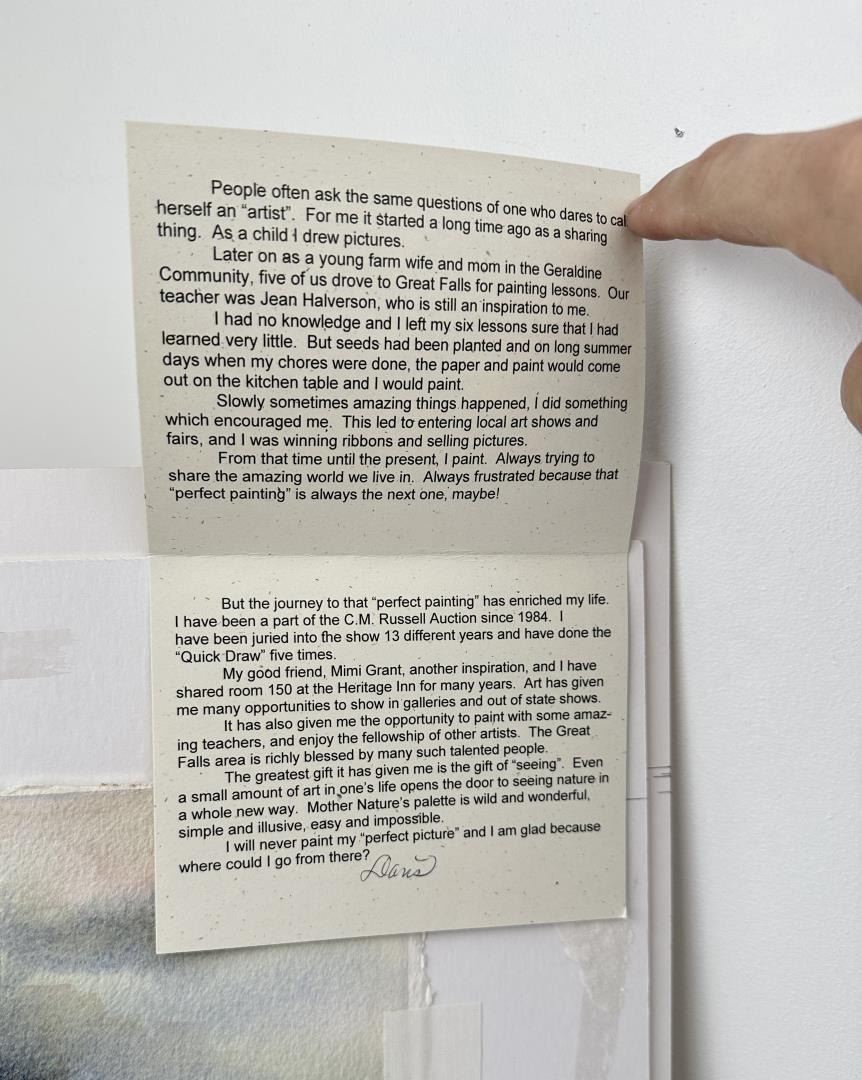 People often ask the same questions of one who dares to call
herself an “artist”. For me it started a long time ago as a sharing
thing. As a child I drew pictures.
Later on as a young farm wife and mom in the Geraldine
Community, five of us drove to Great Falls for painting lessons. Our
teacher was Jean Halverson, who is still an inspiration to me.
I had no knowledge and I left my six lessons sure that I had
learned very little. But seeds had been planted and on long summer
days when my chores were done, the paper and paint would come
out on the kitchen table and I would paint.
Slowly sometimes amazing things happened, I did something
which encouraged me. This led to entering local art shows and
fairs, and I was winning ribbons and selling pictures.
From that time until the present, I paint. Always trying to
share the amazing world we live in. Always frustrated because that
“perfect painting” is always the next one, maybe!
But the journey to that “perfect painting” has enriched my life.
I have been a part of the C.M. Russell Auction since 1984. I
have been juried into the show 13 different years and have done the
“Quick Draw” five times.
My good friend, Mimi Grant, another inspiration, and I have
shared room 150 at the Heritage Inn for many years. Art has given
me many opportunities to show in galleries and out of state shows.
It has also given me the opportunity to paint with some amaz-
ing teachers, and enjoy the fellowship of other artists. The Great
Falls area is richly blessed by many such talented people.
The greatest gift it has given me is the gift of “seeing”. Even
a small amount of art in one’s life opens the door to seeing nature in
a whole new way. Mother Nature’s palette is wild and wonderful,
simple and illusive, easy and impossible.
I will never paint my “perfect picture” and I am glad because
where could I go from there?